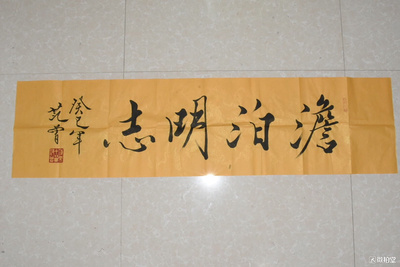 澹泊明志
癸巳年
范曾
微拍堂